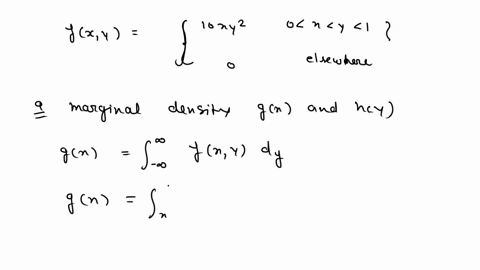 f(x,y) = { 10xy² 0<x<y<1 }
0 elsewhere
a marginal density g(x) and h(y)
g(x) = ∫_{-∞}^{∞} f(x,y) dy
g(x) = ∫_x